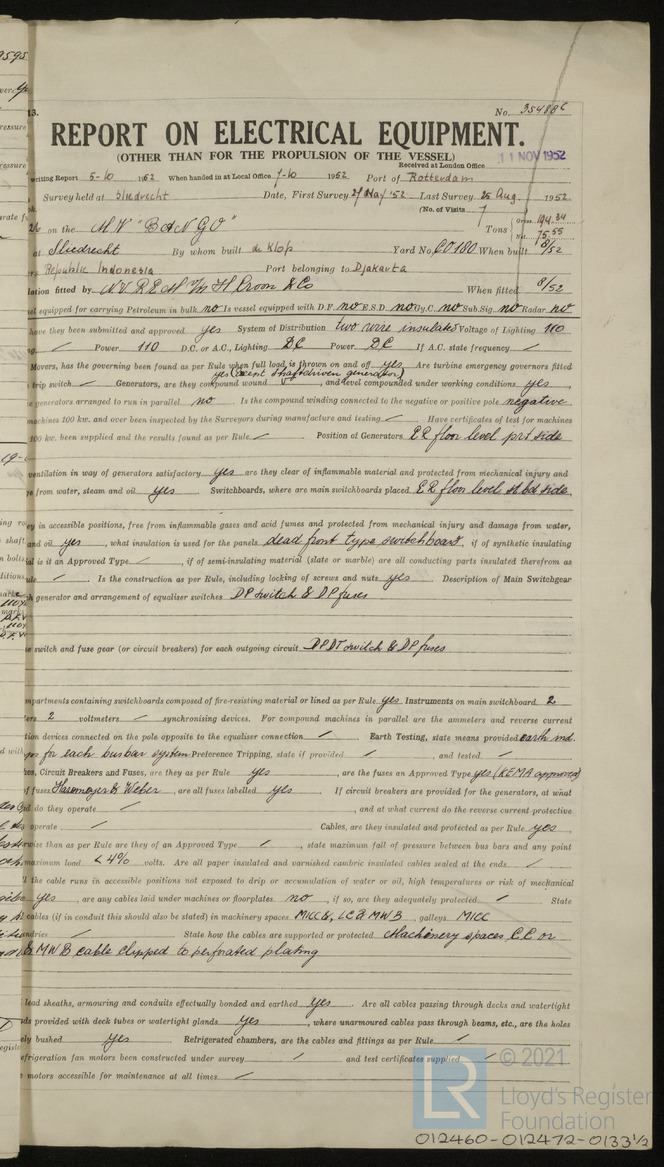 13.
No. 35488c
REPORT ON ELECTRICAL EQUIPMENT.
(OTHER THAN FOR THE PROPULSION OF THE VESSEL)
Received at London Office 11 NOV 1952
writing Report 5-10 1952 When handed in at Local Office 7-10 1952 Port of Rotterdam
Survey held at Sliedrecht Date, First Survey 27 May '52 Last Survey 25 Aug 1952
(No. of Visits 7
on the MV "BANGO" Tons Gross 194.34 Net 75.55
at Sliedrecht By whom built de Klop Yard No. CO180 When built 8/52
Republic Indonesia Port belonging to Djakarta
lation fitted by N.V. R.E.H. v/h Croon & Co When fitted 8/52
sel equipped for carrying Petroleum in bulk no Is vessel equipped with D.F. no E.S.D. no Gy.C. no Sub.Sig. no Radar no
have they been submitted and approved yes System of Distribution two wire insulated Voltage of Lighting 110
Power 110 D.C. or A.C., Lighting DC Power DC If A.C. state frequency
Movers, has the governing been found as per Rule when full load is thrown on and off yes Are turbine emergency governors fitted
trip switch Generators, are they compound wound yes (except shaft driven generator), and level compounded under working conditions yes,
e generators arranged to run in parallel no Is the compound winding connected to the negative or positive pole negative
machines 100 kw. and over been inspected by the Surveyors during manufacture and testing Have certificates of test for machines
100 kw. been supplied and the results found as per Rule Position of Generators ER floor level prt side
ventilation in way of generators satisfactory yes are they clear of inflammable material and protected from mechanical injury and
e from water, steam and oil yes Switchboards, where are main switchboards placed ER floor level st bd side
ey in accessible positions, free from inflammable gases and acid fumes and protected from mechanical injury and damage from water,
and oil yes, what insulation is used for the panels dead front type switchboard, if of synthetic insulating
al is it an Approved Type, if of semi-insulating material (slate or marble) are all conducting parts insulated therefrom as
ule Is the construction as per Rule, including locking of screws and nuts yes Description of Main Switchgear
h generator and arrangement of equaliser switches DP switch & DP fuses
e switch and fuse gear (or circuit breakers) for each outgoing circuit DPDT switch & DP fuses
mpartments containing switchboards composed of fire-resisting material or lined as per Rule yes Instruments on main switchboard 2
ers 2 voltmeters synchronising devices. For compound machines in parallel are the ammeters and reverse current
tion devices connected on the pole opposite to the equaliser connection Earth Testing, state means provided earth ind.
for each busbar system Preference Tripping, state if provided, and tested
hes, Circuit Breakers and Fuses, are they as per Rule yes, are the fuses an Approved Type yes (KEMA approved)
f fuses Hazemeyer & Weber, are all fuses labelled yes If circuit breakers are provided for the generators, at what
d do they operate, and at what current do the reverse current protective
operate Cables, are they insulated and protected as per Rule yes,
wise than as per Rule are they of an Approved Type, state maximum fall of pressure between bus bars and any point
maximum load < 4% volts. Are all paper insulated and varnished cambric insulated cables sealed at the ends
l the cable runs in accessible positions not exposed to drip or accumulation of water or oil, high temperatures or risk of mechanical
yes, are any cables laid under machines or floorplates no, if so, are they adequately protected State
cables (if in conduit this should also be stated) in machinery spaces MICC &, LC & MWB, galleys MICC
undries State how the cables are supported or protected Machinery spaces CC or
& MWB cable clipped to perforated plating
lead sheaths, armouring and conduits effectually bonded and earthed yes. Are all cables passing through decks and watertight
ds provided with deck tubes or watertight glands yes, where unarmoured cables pass through beams, etc., are the holes
ely bushed yes Refrigerated chambers, are the cables and fittings as per Rule
efrigeration fan motors been constructed under survey and test certificates supplied
motors accessible for maintenance at all times
© 2021
LR
Lloyd's Register
Foundation
012460-012472-0133½